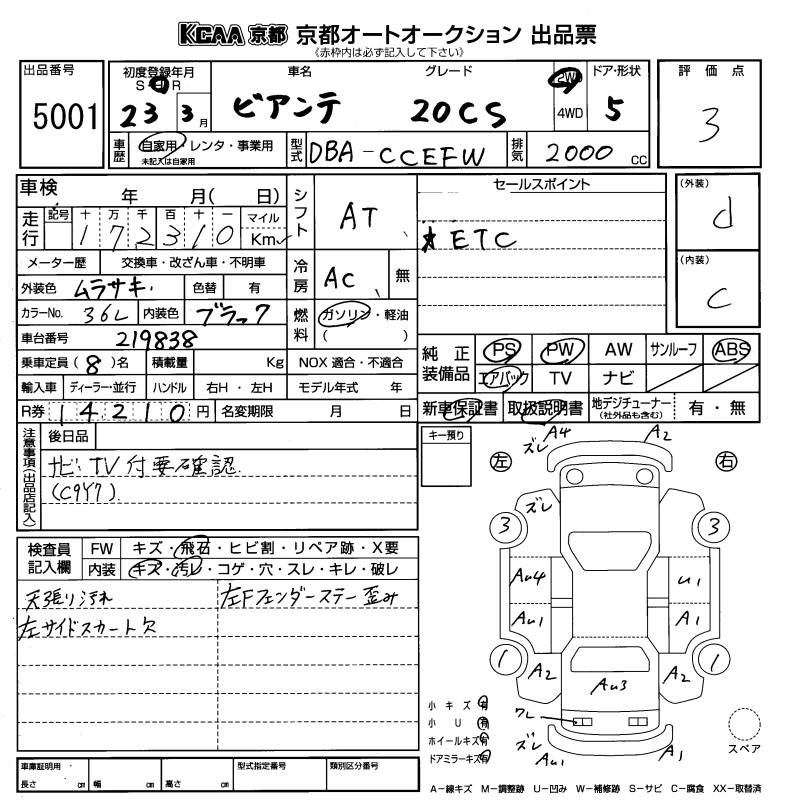 KCAA 京都 京都オートオークション 出品票
《赤枠内は必ず記入して下さい》
出品番号 初度登録年月 車名 グレード 2W ドア・形状 評価点
S H R
5001 23 3月 ビアンテ 20CS 4WD 5 3
車歴 自家用・レンタ・事業用 型式 DBA-CCEFW 排気 2000 CC
未記入は自家用
車検 年 月( 日) シフト AT セールスポイント (外装) d
走行 記号 十 万 千 百 十 一 マイル
1 7 2 3 1 0 Km ETC
メーター歴 交換車・改ざん車・不明車 冷房 AC 無 (内装) C
外装色 ムラサキ 色替 有
カラーNo. 36L 内装色 ブラック 燃料 ガソリン・軽油
車台番号 219838 ( )
乗車定員 (8)名 積載量 Kg NOX 適合・不適合 純正装備品 PS PW AW サンルーフ ABS
輸入車 ディーラー・並行 ハンドル 右H・左H モデル年式 年 エアバック TV ナビ
R券 14210円 名変期限 月 日 新車保証書 取扱説明書 地デジチューナー 有・無
(社外品も含む)
注意事項(出品店記入) 後日品 キー預り
ナビ、TV付要確認
(C9Y7)
左 右
ズレ A4 A2
ズレ
3 3
AU4 U1
AU1 A1
1 1
A2 A2
AU3
ワレ
ズレ AU1 A1
検査員記入欄 FW キズ・飛石・ヒビ割・リペア跡・X要
内装 キズ・汚レ・コゲ・穴・スレ・キレ・破レ
天張り汚れ 左Fフェンダーステー歪み
左サイドスカート欠
小キズ 有
小U 有
ホイールキズ 有
ドアミラーキズ 有
スペア
車庫証明用 型式指定番号 類別区分番号
長さ cm 幅 cm 高さ cm
A-線キズ M-調整跡 U-凹み W-補修跡 S-サビ C-腐食 XX-取替済